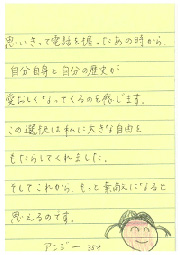 思いきって電話を握ったあの時から、
自分自身と自分の歴史が
愛おしくなってくるのを感じます。
この選択は私に大きな自由を
もたらしてくれました。
そしてこれから、もっと素敵になると
思えるのです。
アンジー